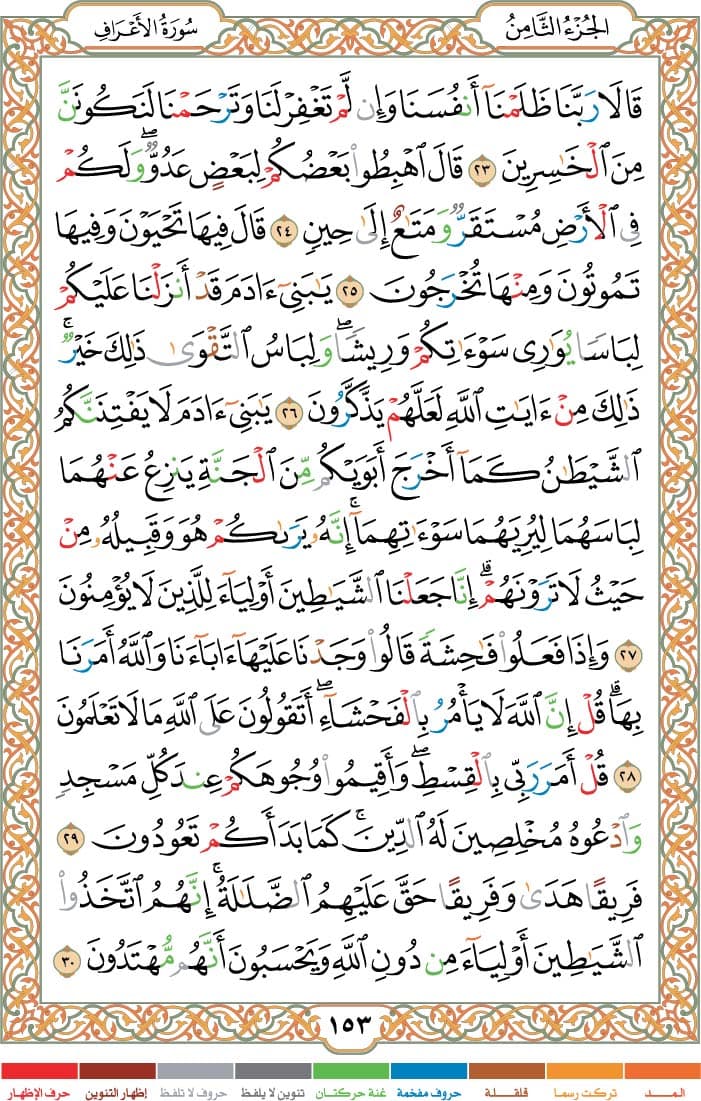 الجُزْءُ الثَّامِنُ
سُورَةُ الأَعْرَافِ
قَالَا رَبَّنَا ظَلَمْنَآ أَنفُسَنَا وَإِن لَّمْ تَغْفِرْ لَنَا وَتَرْحَمْنَا لَنَكُونَنَّ
مِنَ ٱلْخَٰسِرِينَ ٢٣ قَالَ ٱهْبِطُوا۟ بَعْضُكُمْ لِبَعْضٍ عَدُوٌّ ۖ وَلَكُمْ
فِى ٱلْأَرْضِ مُسْتَقَرٌّ وَمَتَٰعٌ إِلَىٰ حِينٍ ٢٤ قَالَ فِيهَا تَحْيَوْنَ وَفِيهَا
تَمُوتُونَ وَمِنْهَا تُخْرَجُونَ ٢٥ يَٰبَنِىٓ ءَادَمَ قَدْ أَنزَلْنَا عَلَيْكُمْ
لِبَاسًا يُوَٰرِى سَوْءَٰتِكُمْ وَرِيشًا ۖ وَلِبَاسُ ٱلتَّقْوَىٰ ذَٰلِكَ خَيْرٌ ۚ
ذَٰلِكَ مِنْ ءَايَٰتِ ٱللَّهِ لَعَلَّهُمْ يَذَّكَّرُونَ ٢٦ يَٰبَنِىٓ ءَادَمَ لَا يَفْتِنَنَّكُمُ
ٱلشَّيْطَٰنُ كَمَآ أَخْرَجَ أَبَوَيْكُم مِّنَ ٱلْجَنَّةِ يَنزِعُ عَنْهُمَا
لِبَاسَهُمَا لِيُرِيَهُمَا سَوْءَٰتِهِمَآ ۗ إِنَّهُۥ يَرَىٰكُمْ هُوَ وَقَبِيلُهُۥ مِنْ
حَيْثُ لَا تَرَوْنَهُمْ ۗ إِنَّا جَعَلْنَا ٱلشَّيَٰطِينَ أَوْلِيَآءَ لِلَّذِينَ لَا يُؤْمِنُونَ
٢٧ وَإِذَا فَعَلُوا۟ فَٰحِشَةً قَالُوا۟ وَجَدْنَا عَلَيْهَآ ءَابَآءَنَا وَٱللَّهُ أَمَرَنَا
بِهَا ۗ قُلْ إِنَّ ٱللَّهَ لَا يَأْمُرُ بِٱلْفَحْشَآءِ ۖ أَتَقُولُونَ عَلَى ٱللَّهِ مَا لَا تَعْلَمُونَ
٢٨ قُلْ أَمَرَ رَبِّى بِٱلْقِسْطِ ۖ وَأَقِيمُوا۟ وُجُوهَكُمْ عِندَ كُلِّ مَسْجِدٍ
وَٱدْعُوهُ مُخْلِصِينَ لَهُ ٱلدِّينَ ۚ كَمَا بَدَأَكُمْ تَعُودُونَ ٢٩
فَرِيقًا هَدَىٰ وَفَرِيقًا حَقَّ عَلَيْهِمُ ٱلضَّلَٰلَةُ ۗ إِنَّهُمُ ٱتَّخَذُوا۟
ٱلشَّيَٰطِينَ أَوْلِيَآءَ مِن دُونِ ٱللَّهِ وَيَحْسَبُونَ أَنَّهُم مُّهْتَدُونَ ٣٠
١٥٣
المـــد تركت رسما قلقـلة حروف مفخمة غنة حركتـان تنوين لا يلفظ حروف لا تلفظ إظهار التنوين حرف الإظهار